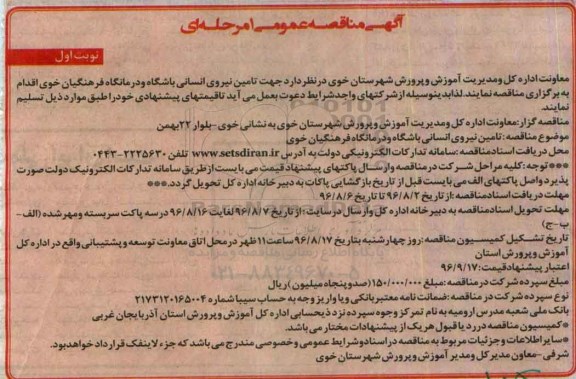 آگهی مناقصه عمومی ۱ مرحله ای
نوبت اول
معاونت اداره کل و مدیریت آموزش و پرورش شهرستان خوی در نظر دارد جهت تامین نیروی انسانی باشگاه و درمانگاه فرهنگیان خوی اقدام
به برگزاری مناقصه نمایند. لذا بدینوسیله از شرکتهای واجد شرایط دعوت بعمل می آید تا قیمتهای پیشنهادی خود را طبق موارد ذیل تسلیم
نمایند.
مناقصه گزار: معاونت اداره کل و مدیریت آموزش و پرورش شهرستان خوی به نشانی خوی - بلوار ۲۲ بهمن
موضوع مناقصه: تامین نیروی انسانی باشگاه و درمانگاه فرهنگیان خوی
محل دریافت اسناد مناقصه: سامانه تدارکات الکترونیکی دولت به آدرس www.setsdiran.ir تلفن ۲۲۲۵۶۳۰-۰۴۴۳
***توجه: کلیه مراحل شرکت در مناقصه و ارسال پاکتهای پیشنهاد قیمت می بایست از طریق سامانه تدارکات الکترونیک دولت صورت
پذیرد و اصل پاکتهای الف می بایست قبل از تاریخ بازگشایی پاکات به دبیرخانه اداره کل تحویل گردد.***
مهلت دریافت اسناد مناقصه: از تاریخ ۹۶/۸/۲ تا تاریخ ۹۶/۸/۶
مهلت تحویل اسناد مناقصه به دبیرخانه اداره کل و ارسال در سایت: از تاریخ ۹۶/۸/۷ لغایت ۹۶/۸/۱۶ در سه پاکت سربسته و مهر شده (الف-
ب-ج)
تاریخ تشکیل کمیسیون مناقصه: روز چهارشنبه بتاریخ ۹۶/۸/۱۷ ساعت ۱۱ ظهر در محل اتاق معاونت توسعه و پشتیبانی واقع در اداره کل
آموزش و پرورش استان
اعتبار پیشنهاد قیمت: ۹۶/۹/۱۷
مبلغ سپرده شرکت در مناقصه: مبلغ ۱۵۰/۰۰۰/۰۰۰ (صد و پنجاه میلیون) ریال
نوع سپرده شرکت در مناقصه: ضمانت نامه معتبر بانکی و یا واریز وجه به حساب سیبا شماره ۲۱۷۳۱۲۰۱۶۵۰۰۴
بانک ملی شعبه مدرس ارومیه به نام تمرکز وجوه سپرده نزد ذیحسابی اداره کل آموزش و پرورش استان آذربایجان غربی
*کمیسیون مناقصه در رد یا قبول هر یک از پیشنهادات مختار می باشد.
*سایر اطلاعات و جزئیات مربوط به مناقصه در اسناد و شرایط عمومی و خصوصی مندرج می باشد که جزء لاینفک قرارداد خواهد بود.
شرفی - معاون مدیر کل و مدیر آموزش و پرورش شهرستان خوی